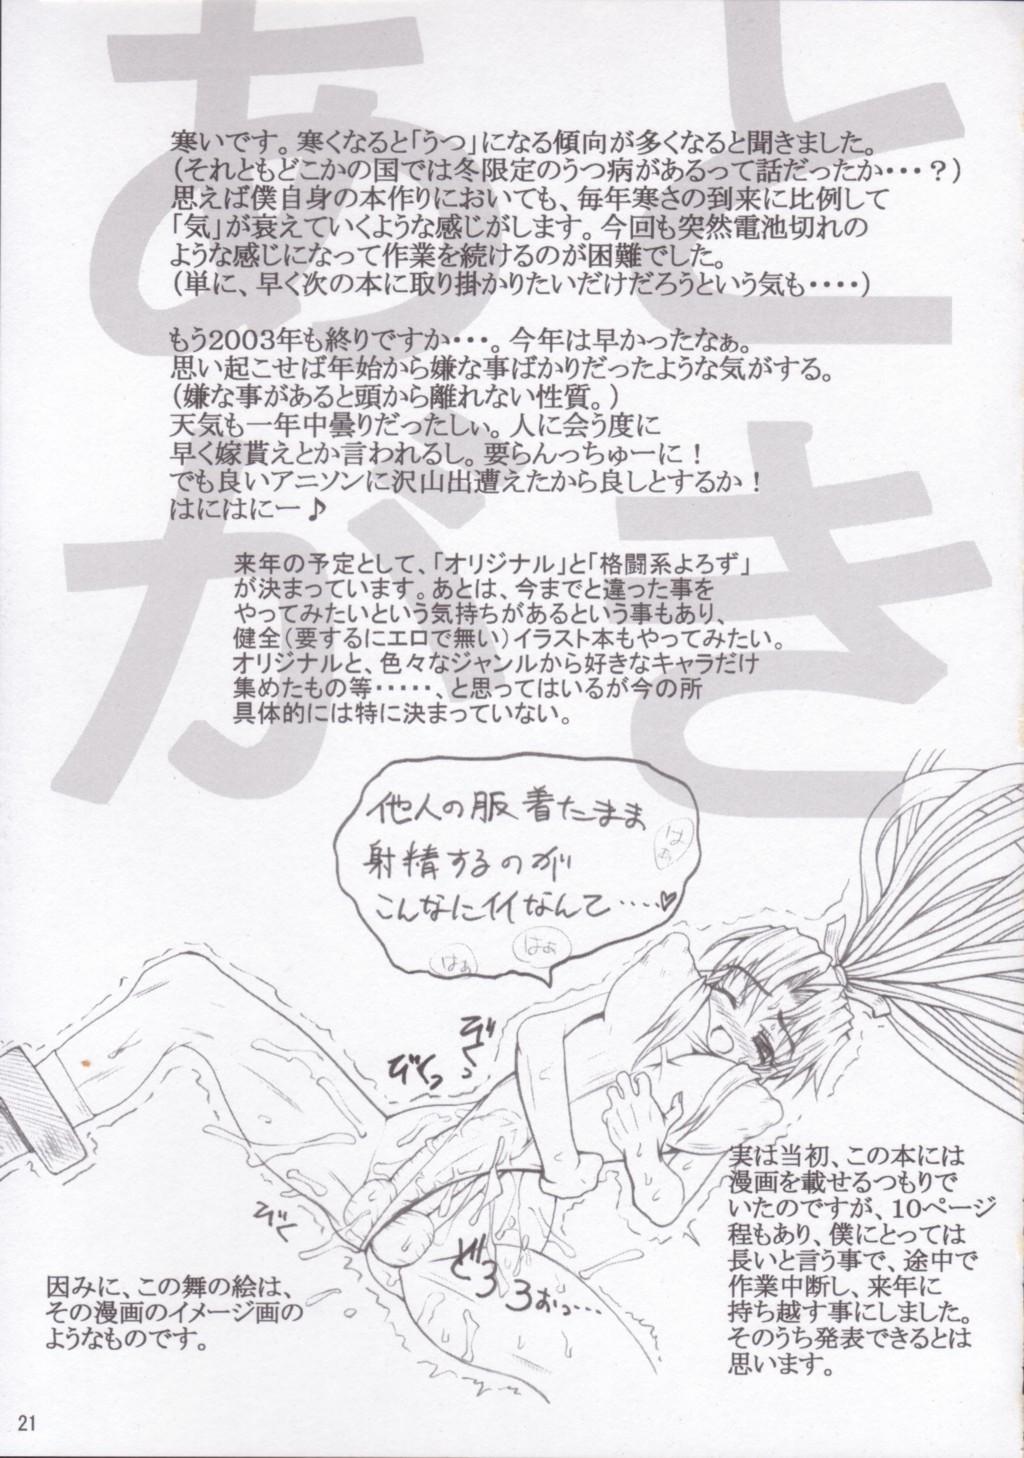 あとがき
寒いです。寒くなると「うつ」になる傾向が多くなると聞きました。
(それともどこかの国では冬限定のうつ病があるって話だったか・・・?)
思えば僕自身の本作りにおいても、毎年寒さの到来に比例して
「気」が衰えていくような感じがします。今回も突然電池切れの
ような感じになって作業を続けるのが困難でした。
(単に、早く次の本に取り掛かりたいだけだろうという気も・・・・)
もう2003年も終りですか・・・。今年は早かったなぁ。
思い起こせば年始から嫌な事ばかりだったような気がする。
(嫌な事があると頭から離れない性質。)
天気も一年中曇りだったしぃ。人に会う度に
早く嫁貰えとか言われるし。要らんっちゅーに!
でも良いアニソンに沢山出遭えたから良しとするか!
はにはにー♪
来年の予定として、「オリジナル」と「格闘系よろず」
が決まっています。あとは、今までと違った事を
やってみたいという気持ちがあるという事もあり、
健全(要するにエロで無い)イラスト本もやってみたい。
オリジナルと、色々なジャンルから好きなキャラだけ
集めたもの等・・・・・、と思ってはいるが今の所
具体的には特に決まっていない。
他人の服着たまま
射精するのが
こんなにイイなんて……♥
はぁ
はぁ
はぁ
びくっ
びくっ
びく
どろ
ろおっ…
実は当初、この本には
漫画を載せるつもりで
いたのですが、10ページ
程もあり、僕にとっては
長いと言う事で、途中で
作業中断し、来年に
持ち越す事にしました。
そのうち発表できるとは
思います。
因みに、この舞の絵は、
その漫画のイメージ画の
ようなものです。
21